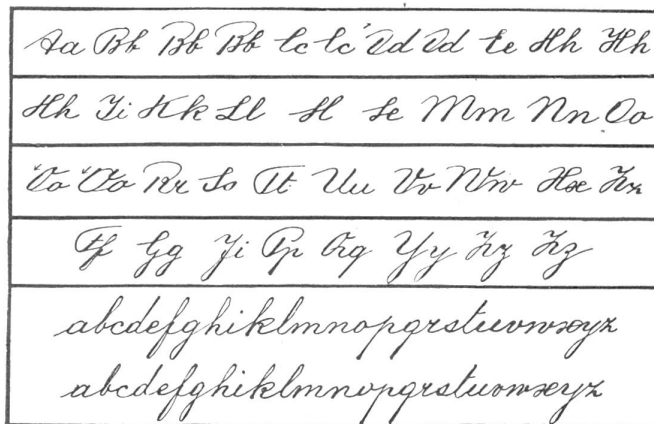 Aa Bb Bb Bb Cc Cc Dd Dd Ee Hh Hh
Hh Ii Kk Ll Mm Nn Oo
Oo Oo Rr Ss Tt Uu Vv Ww Xx Zz
Ff Gg Jj Pp Qq Yy Zz Zz
abcdefghiklmnopqrstuvwxyz
abcdefghiklmnopqrstuvwxyz